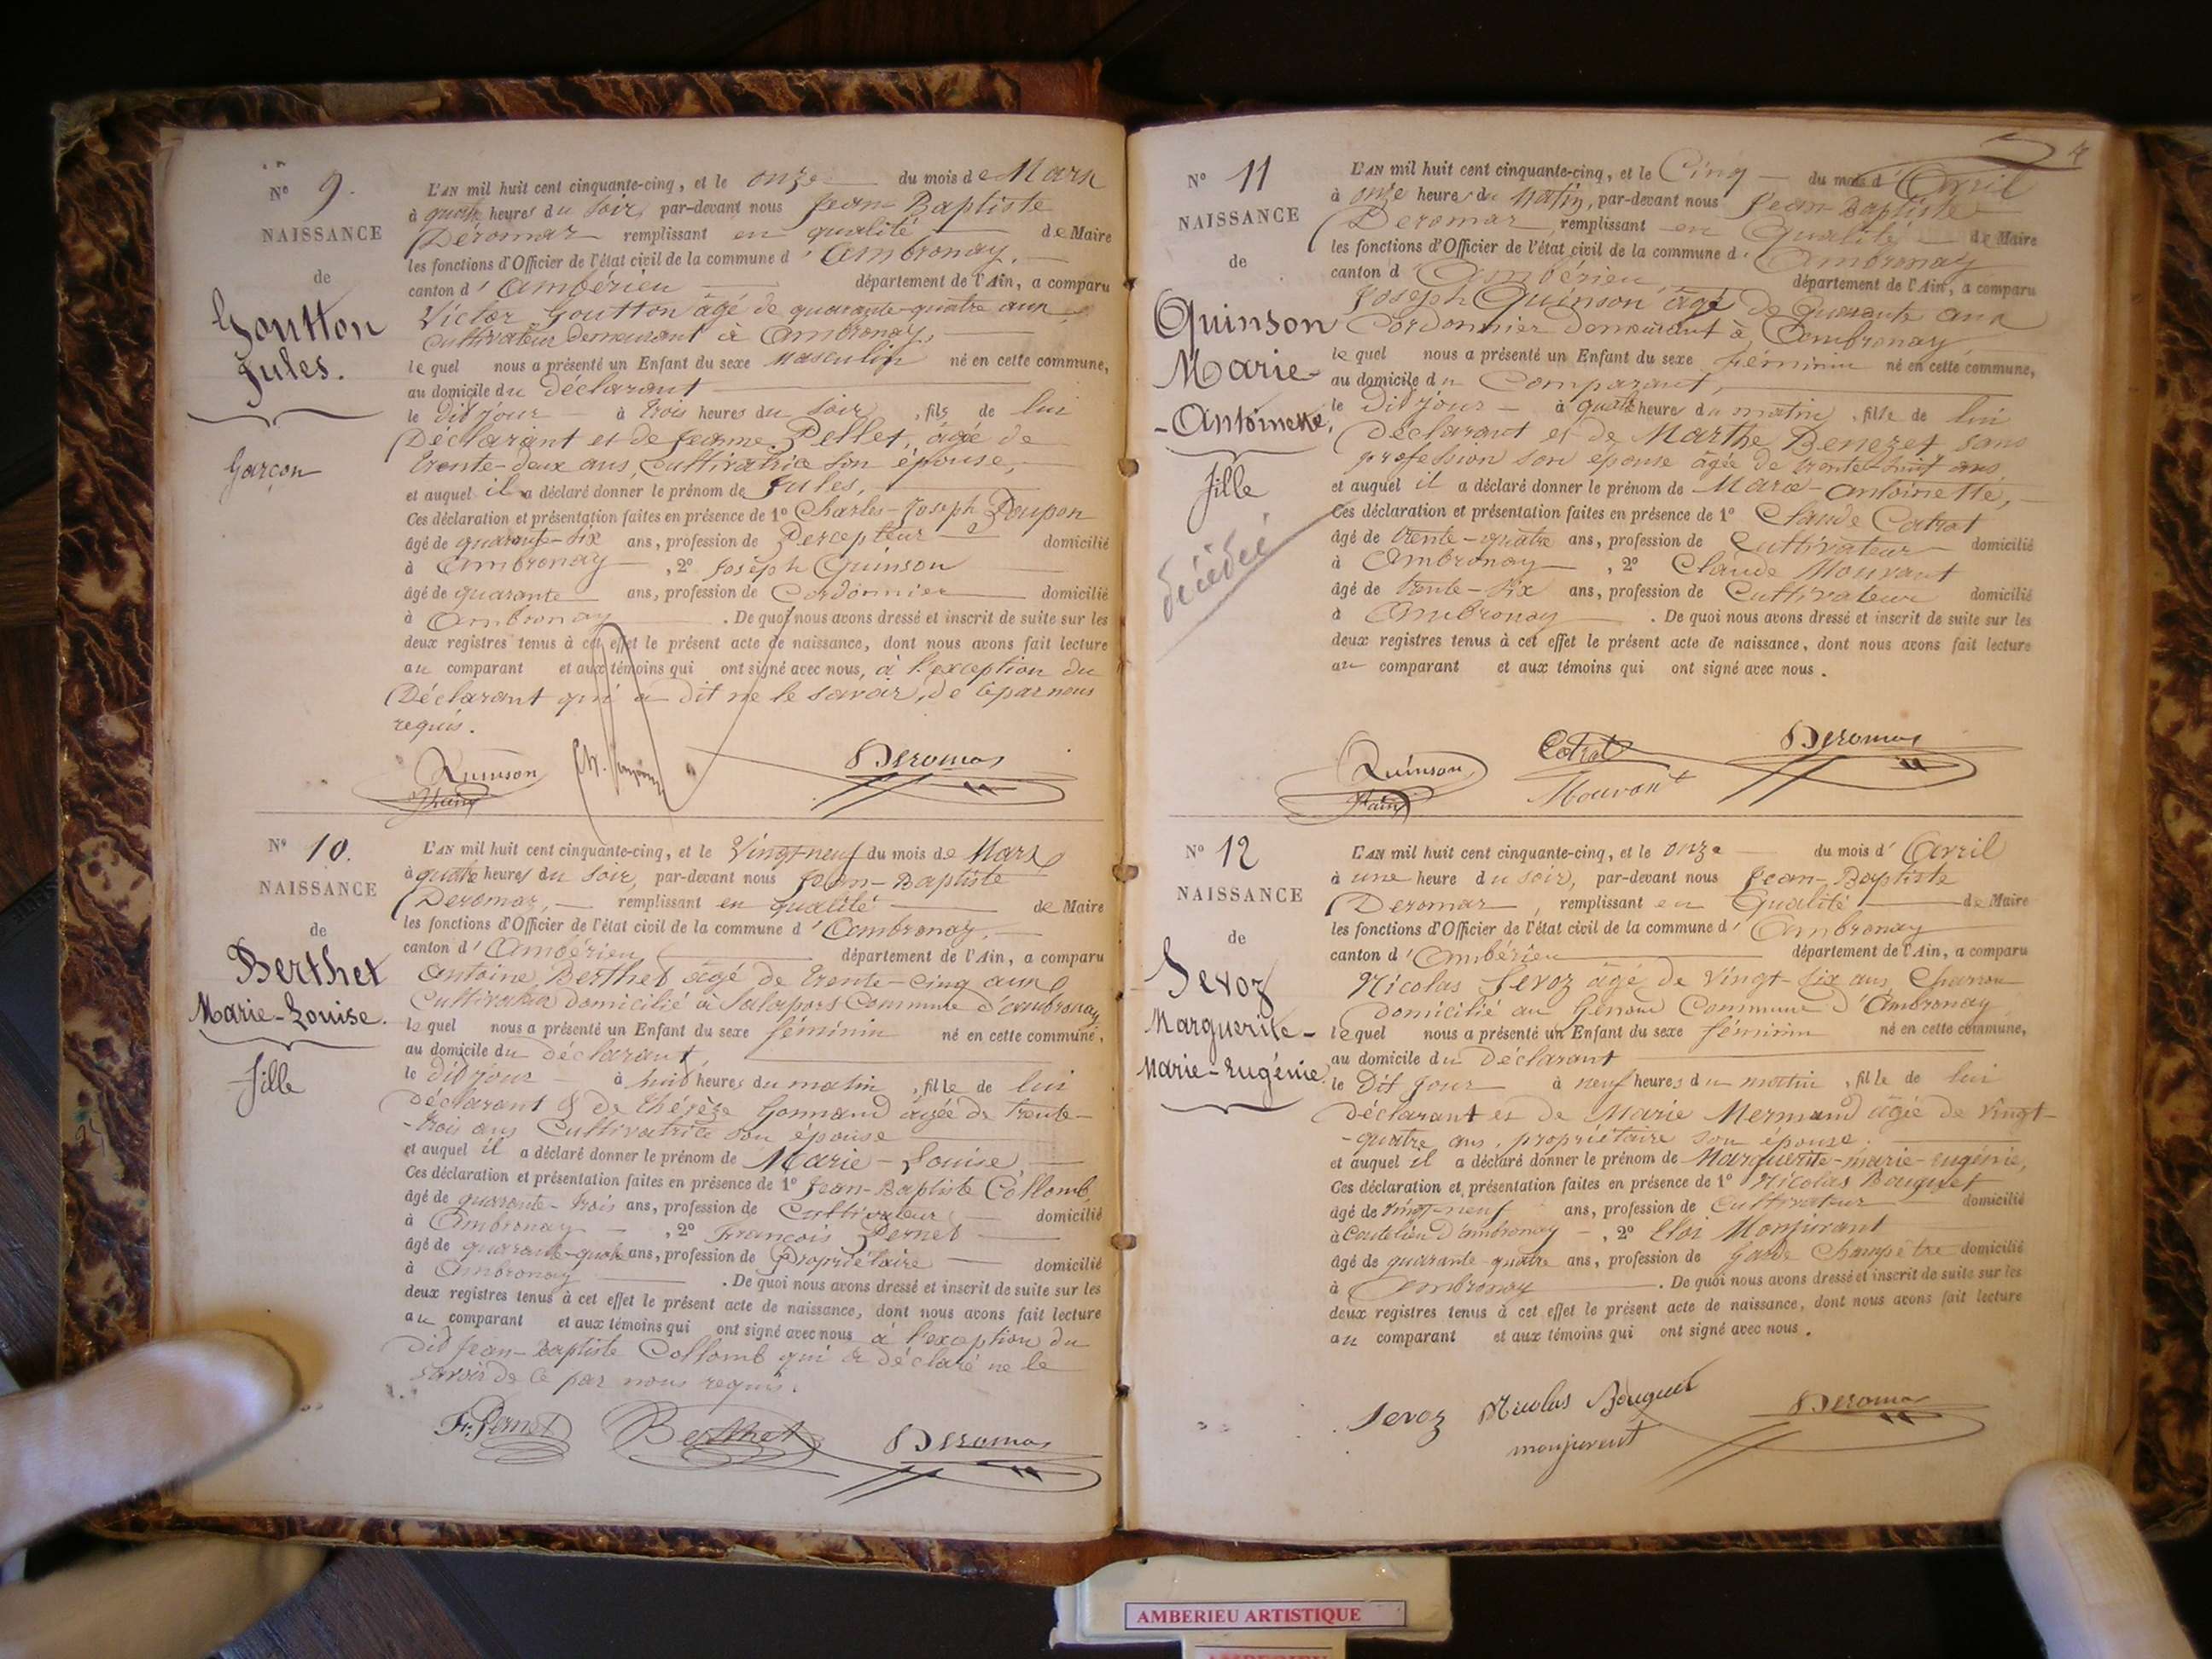 N° 9.
NAISSANCE
de
Goutton
Jules.
Garçon
L'AN mil huit cent cinquante-cinq, et le onze du mois de Mars
à quatre heures du soir, par-devant nous Jean Baptiste
Deromas remplissant en qualité de Maire
les fonctions d'Officier de l'état civil de la commune d'Ambronay,
canton d'Ambérieu département de l'Ain, a comparu
Victor Goutton âgé de quarante-quatre ans
cultivateur demeurant à Ambronay,
lequel nous a présenté un Enfant du sexe Masculin né en cette commune,
au domicile du Déclarant
le dit jour à trois heures du soir, fils de lui
Déclarant et de Jeanne Pellet, âgée de
trente-deux ans, cultivatrice son épouse,
et auquel il a déclaré donner le prénom de Jules,
Ces déclaration et présentation faites en présence de 1° Charles-Joseph Poupon
âgé de quarante-six ans, profession de Percepteur domicilié
à Ambronay, 2° Joseph Quinson
âgé de quarante ans, profession de Cordonnier domicilié
à Ambronay. De quoi nous avons dressé et inscrit de suite sur les
deux registres tenus à cet effet le présent acte de naissance, dont nous avons fait lecture
au comparant et aux témoins qui ont signé avec nous, à l'exception du
Déclarant qui a dit ne le savoir, de ce par nous
requis.
Quinson Deromas
N° 10.
NAISSANCE
de
Berthet
Marie-Louise.
fille
L'AN mil huit cent cinquante-cinq, et le Vingt-neuf du mois de Mars
à quatre heures du soir, par-devant nous Jean-Baptiste
Deromas, remplissant en qualité de Maire
les fonctions d'Officier de l'état civil de la commune d'Ambronay,
canton d'Ambérieu département de l'Ain, a comparu
Antoine Berthet âgé de trente-cinq ans
Cultivateur domicilié à Salapors Commune d'ambronay
lequel nous a présenté un Enfant du sexe féminin né en cette commune,
au domicile du déclarant,
le dit jour à huit heures du matin, fille de lui
déclarant & de thérèze Gonnand âgée de trente-
-trois ans Cultivatrice son épouse
et auquel il a déclaré donner le prénom de Marie-Louise,
Ces déclaration et présentation faites en présence de 1° Jean-Baptiste Collomb,
âgé de quarante-trois ans, profession de Cultivateur domicilié
à Ambronay, 2° François Pernet
âgé de quarante-quatre ans, profession de Propriétaire domicilié
à Ambronay. De quoi nous avons dressé et inscrit de suite sur les
deux registres tenus à cet effet le présent acte de naissance, dont nous avons fait lecture
au comparant et aux témoins qui ont signé avec nous à l'exception du
dit Jean-Baptiste Collomb qui a déclaré ne le
savoir de ce par nous requis.
Fr. Pernet Berthet Deromas
4
N° 11
NAISSANCE
de
Quinson
Marie-
-Antoinette,
fille
décédée
L'AN mil huit cent cinquante-cinq, et le Cinq du mois d'Avril
à onze heures du Matin, par-devant nous Jean-Baptiste
Deromas, remplissant en Qualité de Maire
les fonctions d'Officier de l'état civil de la commune d'Ambronay
canton d'Ambérieu département de l'Ain, a comparu
Joseph Quinson âgé de Quarante ans
Cordonnier demeurant à Ambronay
lequel nous a présenté un Enfant du sexe féminin né en cette commune,
au domicile du Comparant,
le Dit jour à quatre heures du matin, fille de lui
Déclarant et de Marthe Benezet sans
profession son épouse âgée de trente-neuf ans
et auquel il a déclaré donner le prénom de Marie-Antoinette,
Ces déclaration et présentation faites en présence de 1° Claude Cotrat
âgé de trente-quatre ans, profession de Cultivateur domicilié
à Ambronay, 2° Claude Mouvant
âgé de trente-six ans, profession de Cultivateur domicilié
à Ambronay. De quoi nous avons dressé et inscrit de suite sur les
deux registres tenus à cet effet le présent acte de naissance, dont nous avons fait lecture
au comparant et aux témoins qui ont signé avec nous.
Quinson Cotrat Deromas
Mouvant
N° 12
NAISSANCE
de
Sevoz
Marguerite-
Marie-Eugénie.
L'AN mil huit cent cinquante-cinq, et le onze du mois d'Avril
à une heure du soir, par-devant nous Jean-Baptiste
Deromas, remplissant en Qualité de Maire
les fonctions d'Officier de l'état civil de la commune d'Ambronay
canton d'Ambérieu département de l'Ain, a comparu
Nicolas Sevoz âgé de vingt-six ans, Charron
Domicilié au Genoud Commune d'Ambronay
lequel nous a présenté un Enfant du sexe féminin né en cette commune,
au domicile du Déclarant
le Dit jour à neuf heures du matin, fille de lui
déclarant et de Marie Mermand âgée de vingt-
-quatre ans, propriétaire son épouse.
et auquel il a déclaré donner le prénom de Marguerite-marie-eugénie,
Ces déclaration et présentation faites en présence de 1° Nicolas Bouguet
âgé de vingt-neuf ans, profession de Cultivateur domicilié
à Coutelieu D'ambronay, 2° Eloi Monjuvant
âgé de quarante-quatre ans, profession de Garde Champêtre domicilié
à Ambronay. De quoi nous avons dressé et inscrit de suite sur les
deux registres tenus à cet effet le présent acte de naissance, dont nous avons fait lecture
au comparant et aux témoins qui ont signé avec nous.
Sevoz Nicolas Bouguet Deromas
monjuvent
AMBERIEU ARTISTIQUE